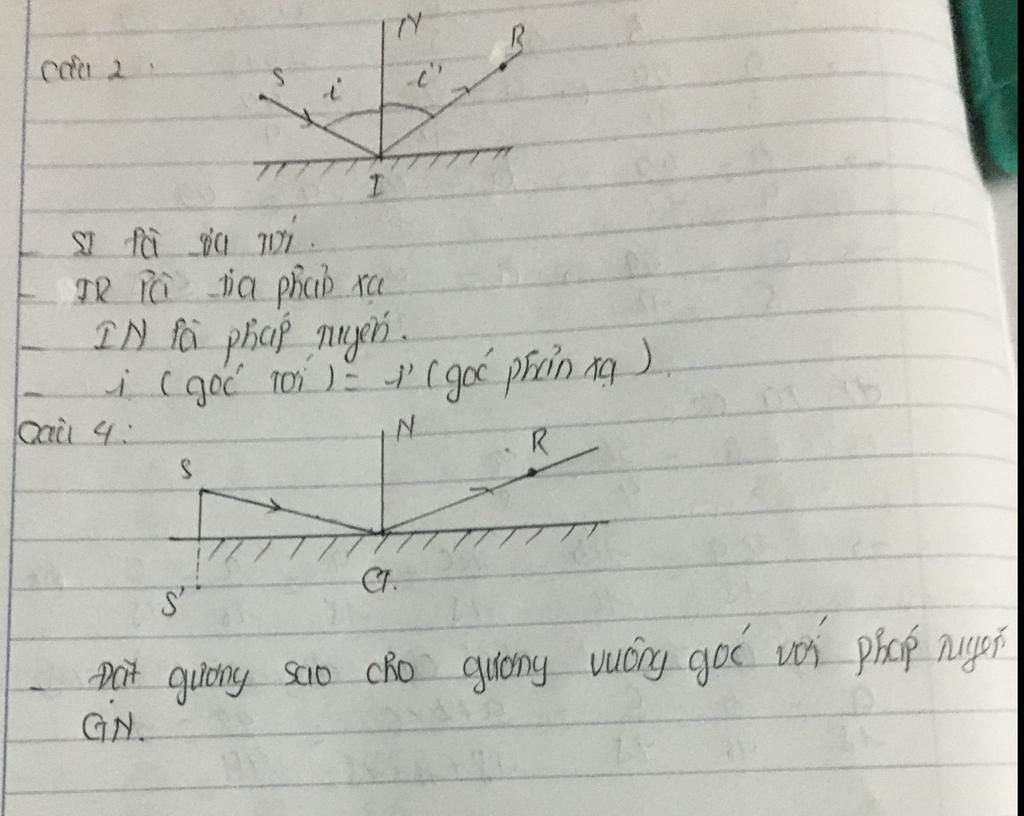 Câu 2:
N
R
S
i
i'
I
- SI là tia tới.
- IR là tia phản xạ
- IN là pháp tuyến.
- i (góc tới) = i' (góc phản xạ).
Câu 4:
N
R
S
G.
S'
- Đặt gương sao cho gương vuông góc với pháp tuyến
GN.